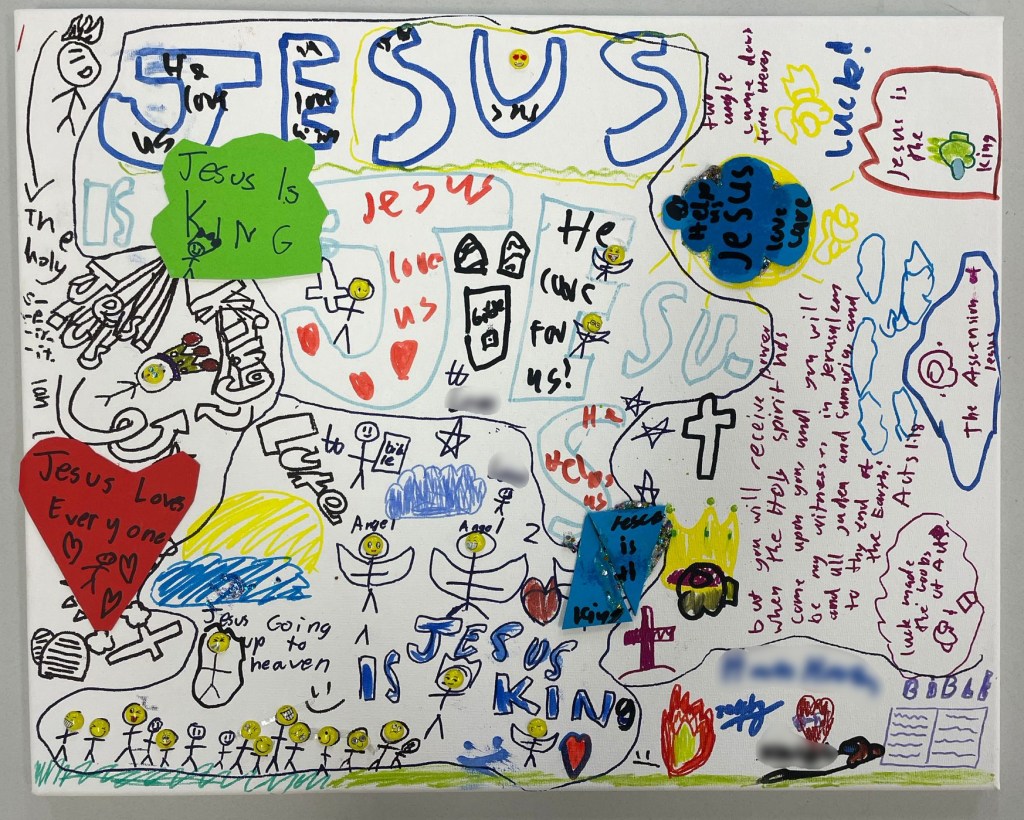 JESUS
He
love
us
love
two
angle
came down
from Heven
Luckd!
Jesus is
the
King
Jesus Is
KING
IS
Jesus
love
us
He
care
For
us!
Help
us
JESUS
love
care
ESU.
The
holy
s-
-p-
-ir-
-it.
bible
to
but you will receive power
when the HOly spirit has
come upon you, and you will
be my witnesses, in Jerusalem
and all judea and Samaria, and
to thy end of
the Earth,'
Acts 1:8
The Ascenion of
Jesus
Luke
to
bible
He
Helps
us
Jesus Loves
Everyone
Angel
Angel
2
Jesus
is
King
luck made
the books
of ut Acts
Jesus Going
up to
heaven
JESUS
IS
KINg
BIBLE